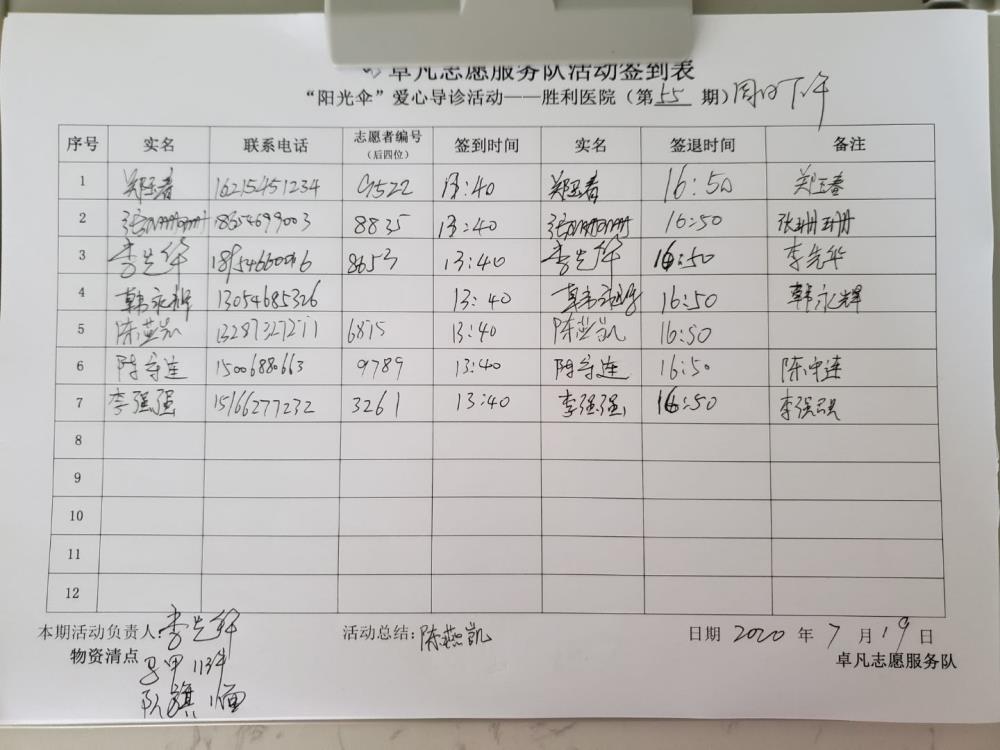 卓凡志愿服务队活动签到表
“阳光伞”爱心导诊活动——胜利医院（第 55 期）周日下午
序号 实名 联系电话 志愿者编号（后四位） 签到时间 实名 签退时间 备注
1 郑玉春 16215451234 9522 13:40 郑玉春 16:50 郑玉春
2 张珊珊 18654699003 8835 13:40 张珊珊 16:50 张珊珊
3 李先华 18154660016 8653 13:40 李先华 16:50 李先华
4 韩永辉 13054685326 13:40 韩永辉 16:50 韩永辉
5 陈燕凯 13287327211 6875 13:40 陈燕凯 16:50
6 陈守连 15006880663 9789 13:40 陈守连 16:50 陈守连
7 李强强 15166277232 3261 13:40 李强强 16:50 李强强
8
9
10
11
12
本期活动负责人: 李先华 活动总结: 陈燕凯 日期 2020 年 7 月 19 日
物资清点 卓凡志愿服务队
马甲 113件
队旗 1面